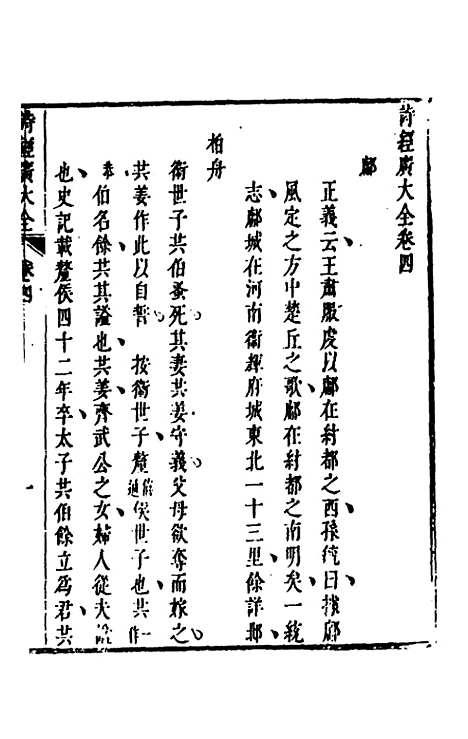 詩經廣大全卷四
鄘
正義云王肅服虔以鄘在紂都之西孫毓曰據鄘
風定之方中楚丘之歌鄘在紂都之南明矣一統
志鄘城在河南衛輝府城東北一十三里餘詳邶
柏舟
衛世子共伯蚤死其妻共姜守義父母欲奪而嫁之
共姜作此以自誓 按衛世子釐侯世子也共一作
恭伯名餘共其諡也共姜齊武公之女婦人從夫諡
也史記載釐侯四十二年卒太子共伯餘立為君共
詩經廣大全
卷四
一